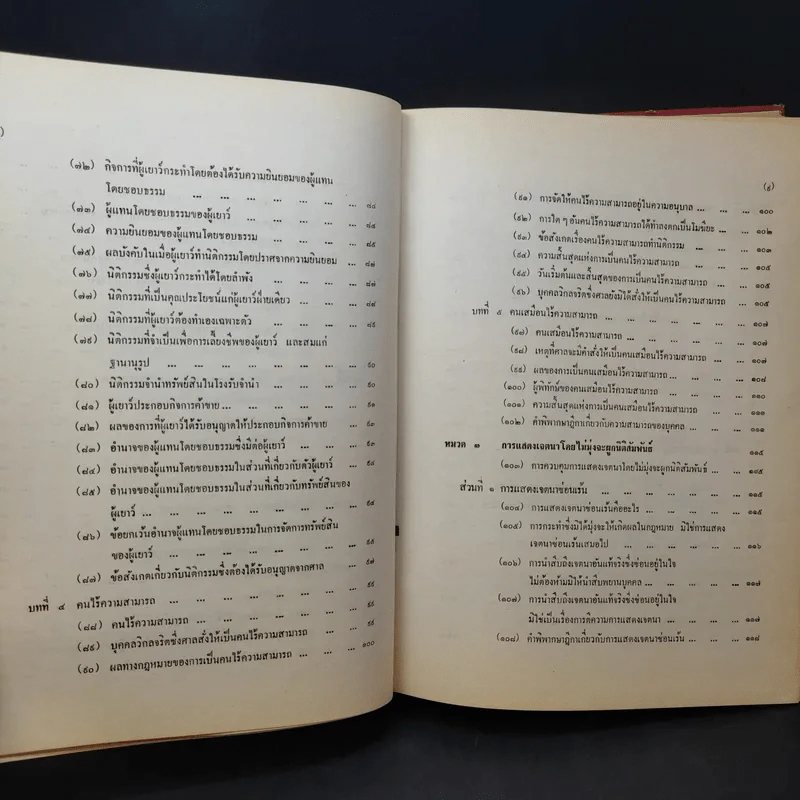 )
(๗๒) กิจการที่ผู้เยาว์กระทำโดยต้องได้รับความยินยอมของผู้แทน
โดยชอบธรรม ... ... ... ... ... ๘๔
(๗๓) ผู้แทนโดยชอบธรรมของผู้เยาว์ ... ... ... ๘๔
(๗๔) ความยินยอมของผู้แทนโดยชอบธรรม ... ... ... ๘๕
(๗๕) ผลบังคับในเมื่อผู้เยาว์ทำนิติกรรมโดยปราศจากความยินยอม ... ๘๗
(๗๖) นิติกรรมซึ่งผู้เยาว์กระทำได้โดยลำพัง ... ... ... ๘๘
(๗๗) นิติกรรมที่เป็นคุณประโยชน์แก่ผู้เยาว์ฝ่ายเดียว ... ... ... ๘๘
(๗๘) นิติกรรมที่ผู้เยาว์ต้องทำเองเฉพาะตัว ... ... ... ๘๙
(๗๙) นิติกรรมที่จำเป็นเพื่อการเลี้ยงชีพของผู้เยาว์ และสมแก่
ฐานานุรูป ... ... ... ... ... ๙๐
(๘๐) นิติกรรมจำนำทรัพย์สินในโรงรับจำนำ ... ... ... ๙๐
(๘๑) ผู้เยาว์ประกอบกิจการค้าขาย ... ... ... ... ๙๑
(๘๒) ผลของการที่ผู้เยาว์ได้รับอนุญาตให้ประกอบกิจการค้าขาย ... ๙๒
(๘๓) อำนาจของผู้แทนโดยชอบธรรมซึ่งมีต่อผู้เยาว์ ... ... ๙๓
(๘๔) อำนาจของผู้แทนโดยชอบธรรมในส่วนที่เกี่ยวกับตัวผู้เยาว์ ... ๙๔
(๘๕) อำนาจของผู้แทนโดยชอบธรรมในส่วนที่เกี่ยวกับทรัพย์สินของ
ผู้เยาว์ ... ... ... ... ... ๙๔
(๘๖) ข้อยกเว้นอำนาจผู้แทนโดยชอบธรรมในการจัดการทรัพย์สิน
ของผู้เยาว์ ... ... ... ... ... ๙๕
(๘๗) ข้อสังเกตเกี่ยวกับนิติกรรมซึ่งต้องได้รับอนุญาตจากศาล ... ๙๗
บทที่ ๔ คนไร้ความสามารถ ... ... ... ... ... ๙๙
(๘๘) คนไร้ความสามารถ ... ... ... ... ๙๙
(๘๙) บุคคลวิกลจริตซึ่งศาลสั่งให้เป็นคนไร้ความสามารถ ... ... ๙๙
(๙๐) ผลทางกฎหมายของการเป็นคนไร้ความสามารถ ... ... ... ๑๐๐
(๙)
(๙๑) การจัดให้คนไร้ความสามารถอยู่ในความอนุบาล ... ... ... ๑๐๐
(๙๒) การใด ๆ อันคนไร้ความสามารถได้ทำลงตกเป็นโมฆียะ ... ... ๑๐๒
(๙๓) ข้อสังเกตเรื่องคนไร้ความสามารถทำนิติกรรม ... ... ... ๑๐๓
(๙๔) ความสิ้นสุดแห่งการเป็นคนไร้ความสามารถ ... ... ... ๑๐๕
(๙๕) วันเริ่มต้นและสิ้นสุดของการเป็นคนไร้ความสามารถ ... ... ๑๐๕
(๙๖) บุคคลวิกลจริตซึ่งศาลยังมิได้สั่งให้เป็นคนไร้ความสามารถ ... ๑๐๕
บทที่ ๕ คนเสมือนไร้ความสามารถ ... ... ... ... ๑๐๗
(๙๗) คนเสมือนไร้ความสามารถ ... ... ... ... ๑๐๗
(๙๘) เหตุที่ศาลจะมีคำสั่งให้เป็นคนเสมือนไร้ความสามารถ ... ... ๑๐๗
(๙๙) ผลของการเป็นคนเสมือนไร้ความสามารถ ... ... ... ... ๑๐๘
(๑๐๐) ผู้พิทักษ์ของคนเสมือนไร้ความสามารถ ... ... ... ๑๑๐
(๑๐๑) ความสิ้นสุดแห่งการเป็นคนเสมือนไร้ความสามารถ ... ... ๑๑๑
(๑๐๒) คำพิพากษาฎีกาเกี่ยวกับความสามารถของบุคคล ... ... ๑๑๑
หมวด ๓ การแสดงเจตนาโดยไม่มุ่งจะผูกนิติสัมพันธ์ ๑๑๕
(๑๐๓) การควบคุมการแสดงเจตนาโดยไม่มุ่งจะผูกนิติสัมพันธ์ ... ... ๑๑๕
ส่วนที่ ๑ การแสดงเจตนาซ่อนเร้น ... ... ... ... ... ๑๑๕
(๑๐๔) การแสดงเจตนาซ่อนเร้นคืออะไร ... ... ... ... ๑๑๕
(๑๐๕) การกระทำซึ่งมิได้มุ่งจะให้เกิดผลในกฎหมาย มิใช่การแสดง
เจตนาซ่อนเร้นเสมอไป ... ... ... ... ... ๑๑๖
(๑๐๖) การนำสืบถึงเจตนาอันแท้จริงซึ่งซ่อนอยู่ในใจ
ไม่ต้องห้ามมิให้นำสืบพยานบุคคล ... ... ... ๑๑๗
(๑๐๗) การนำสืบถึงเจตนาอันแท้จริงซึ่งซ่อนอยู่ในใจ
มิใช่เป็นเรื่องการตีความการแสดงเจตนา ... ... ... ๑๑๗
(๑๐๘) คำพิพากษาฎีกาเกี่ยวกับการแสดงเจตนาซ่อนเร้น ... ... ... ๑๑๘